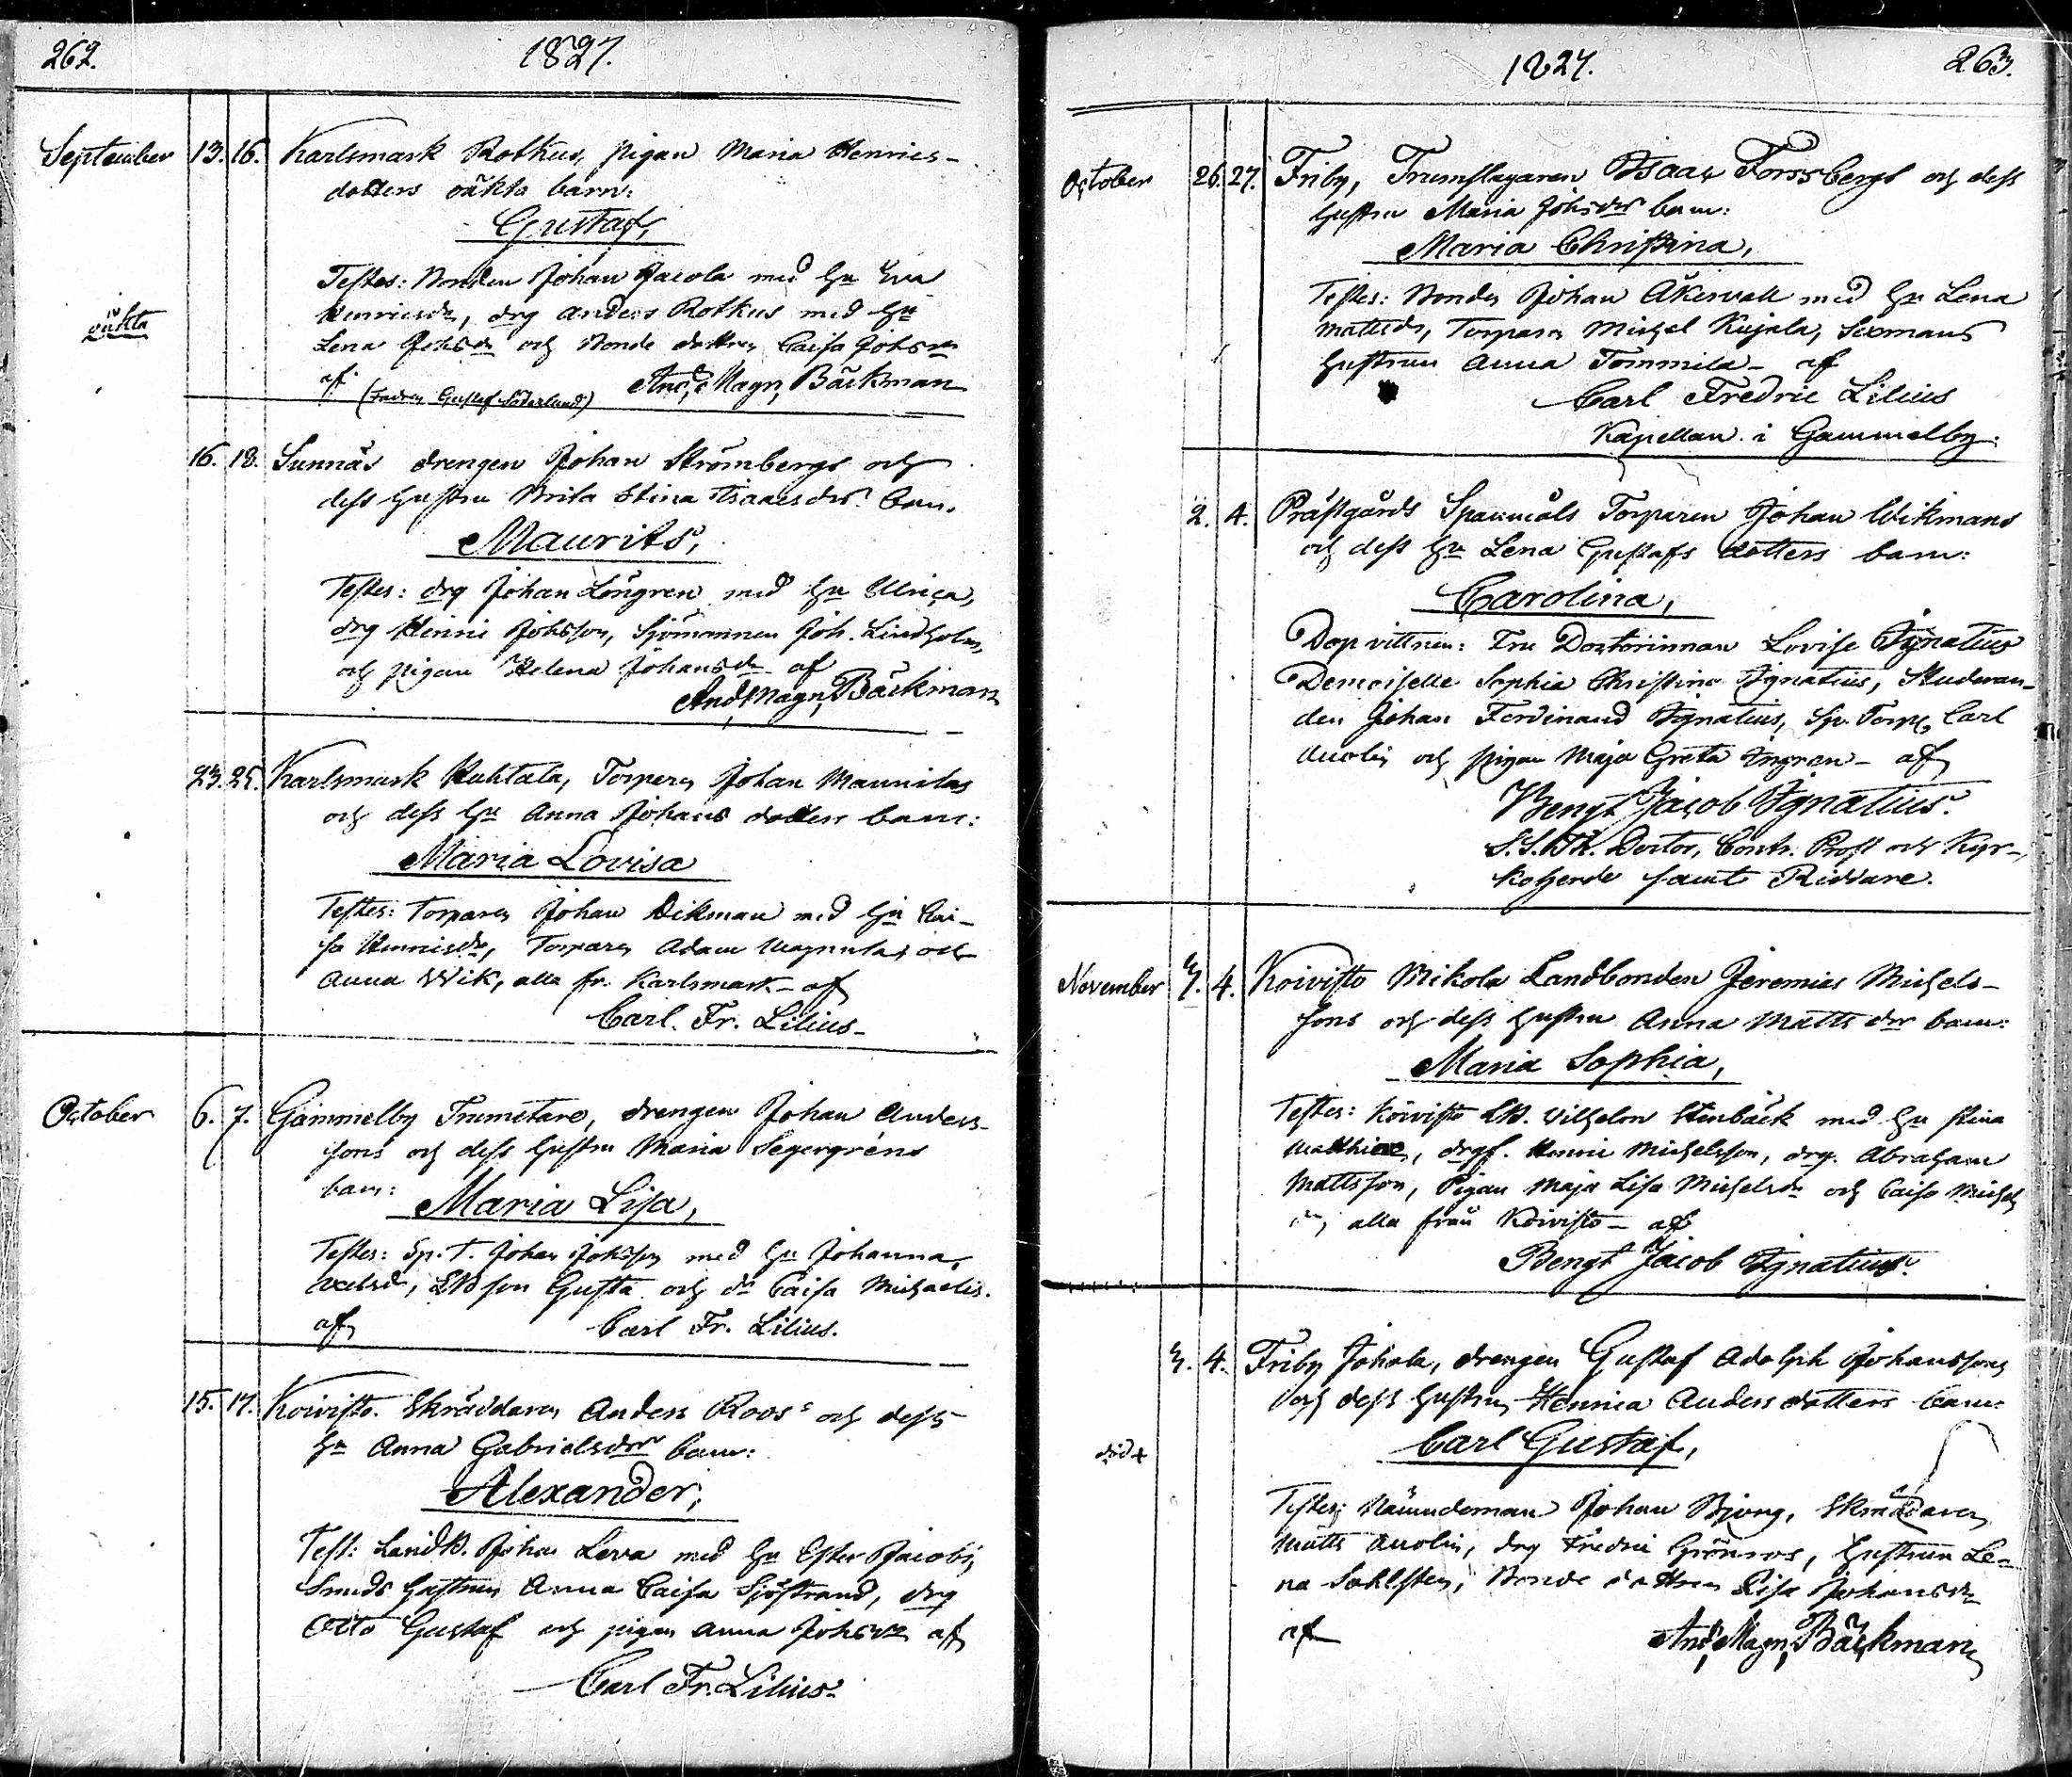 262. 1827.
September 13. 16. Karlsmark Rotkus, pigan Maria Henrics-
dotters oäkta barn:
Gustaf,
Testes: Bonden Johan Jacola med hu Eva
Henricsdr, drg Anders Rotkus med hu
oäkta
Lena Johsdr och Bonde dottren Caisa Johsdr
af (Fadren Gustaf Söderlund) And. Magn. Bäckman
16. 18. Sunnäs drengen Johan Strömbergs och
dess hustru Brita Stina Isaacsdrs barn.
Maurits,
Testes: drg Johan Löngren med hu Ulrica,
drg Henric Johsson, Sjömannen Joh. Lindholm,
och pigan Helena Johansdr af
And. Magn. Bäckman
23. 25. Karlsmark Huhtala, Torparen Johan Maunilas
och dess hu Anna Johans dotters barn:
Maria Lovisa
Testes: Torparen Johan Dikman med hu Cai-
sa Henricsdr, Torparen Adam och
Anna Wik, alla fr. Karlsmark - af
Carl. Fr. Lilius-
October 6. 7. Gammelby Trumetare, drengen Johan Anders-
sons och dess hustru Maria Segergréns
barn: Maria Lisa,
Testes: Sp. T. Johan Johsson med hu Johanna
Axelsdr, LB son Gusta och dr Caisa Michaelis.
af Carl Fr. Lilius.
15. 17. Koivisto. Skräddaren Anders Roos' och dess
hu Anna Gabrielsdrs barn:
Alexander,
Test: LandB. Johan Leva med hu Ester Jacobs,
Smeds hustrun Anna Caisa Sjöstrand, drg
Otto Gustaf och pigan Anna Johsdr af
Carl Fr. Lilius.
1827. 263.
October 26. 27. Friby, Trumslagaren Isaac Forssbergs och dess
hustru Maria Johsdrs barn:
Maria Christina,
Testes: Bonden Johan Åkervall med hu Lena
Mattsdr, Torparen Michel Kujala, Sexmans
hustrun Anna Tommila - af
Carl Fredric Lilius
Kapellan i Gammelby.
2. 4. Prästgårds Spanmåls Torparen Johan Wikmans
och dess hu Lena Gustafs dotters barn:
Carolina,
Dop vittnen: Fru Doctorinnan Lovise Ignatius
Demoiselle Sophia Christina Ignatius, Studeran-
den Johan Ferdinand Ignatius, Sp. Torp. Carl
Auolin och pigan Maja Greta Ingren - af
Bengt Jacob Ignatius.
S. S. Th. Doctor, Contr. Prost och Kyr-
koherde samt Riddare.
November 3. 4. Koivisto Mikola Landbonden Jeremias Michels-
sons och dess hustru Anna Matts dr barn:
Maria Sophia,
Testes: Koivisto LB. Vilhelm Stenbäck med hu Stina
Matthiae, drg. Henric Michelsson, drg. Abraham
Mattsson, Pigan Maja Lisa Michelsdr och Caisa Michels
dr, alla från Koivisto - af
Bengt Jacob Ignatius.
3. 4. Friby Johola, drengen Gustaf Adolph Johanssons
och dess hustru Hennica Anders dotters barn:
Carl Gustaf,
död +
Testes: Nämndeman Johan Bjong, Skräddaren
Matts Auolin, drg Fredric Grönroos, hustrun Le-
na Sahlsten, Bonde dottren Lisa Johansdr
af And. Magn. Bäckman